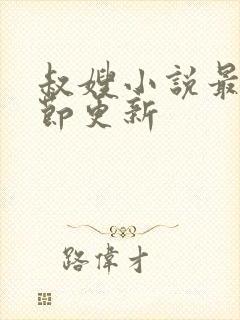 叔嫂小説最
節更新
路偉才